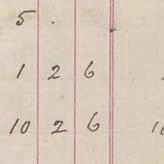 5 .
1 2 6
10 2 6